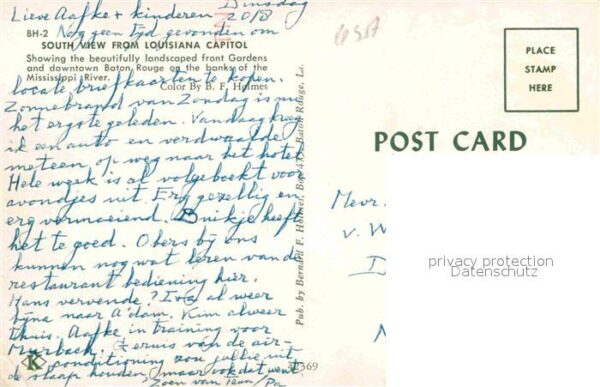 Dinsdag
Lieve Aafke + kinderen 2018
BH-2 Nog geen tijd gevonden om
SOUTH VIEW FROM LOUISIANA CAPITOL
Showing the beautifully landscaped front Gardens
and downtown Baton Rouge on the banks of the
Mississippi River.
Color By B. F. Holmes
locale briefkaarten te kopen.
Zonnebrand van Zondag is nu
het ergste geleden. Vandaag kreeg
ik een auto en verdwaalde
meteen op weg naar het hotel
Hele week is al volgeboekt voor
avondjes uit. Erg gezellig en
erg vermoeiend. Buikje heeft
het te goed. Obers bij ons
kunnen nog wat leren van de
restaurant bediening hier.
Hans vervende? al weer
bijna naar A'dam. Kim alweer
thuis. Aafke in training voor
Murbach. geruis van de air-
conditioning zou jullie uit
de slaap houden, maar ook dat went.
Zoen van
Pub. by Bernard F. Holmes, Box 473, Baton Rouge, La.
K
32369
USA
PLACE
STAMP
HERE
POST CARD
Mevr.
v. W
privacy protection
Datenschutz